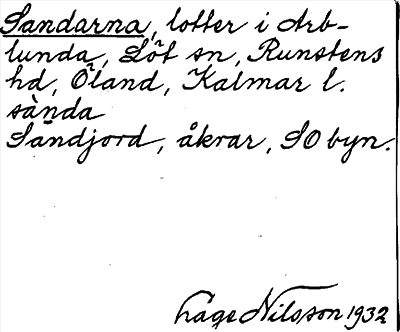 Sandarna, lotter i Arb-
lunda, Löt sn, Runstens
hd, Öland, Kalmar l.
sànda
Sandjord, åkrar, SO byn.
Lage Nilsson 1932